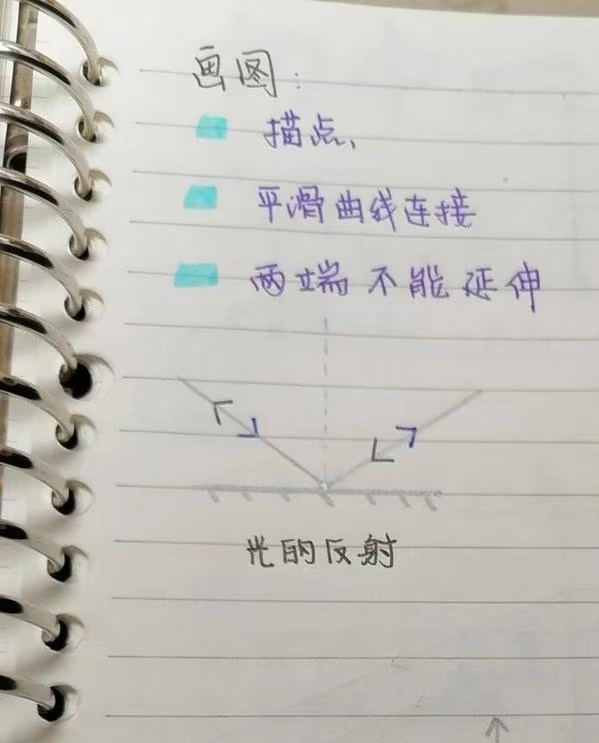 画图:
描点、
平滑曲线连接
两端不能延伸
光的反射